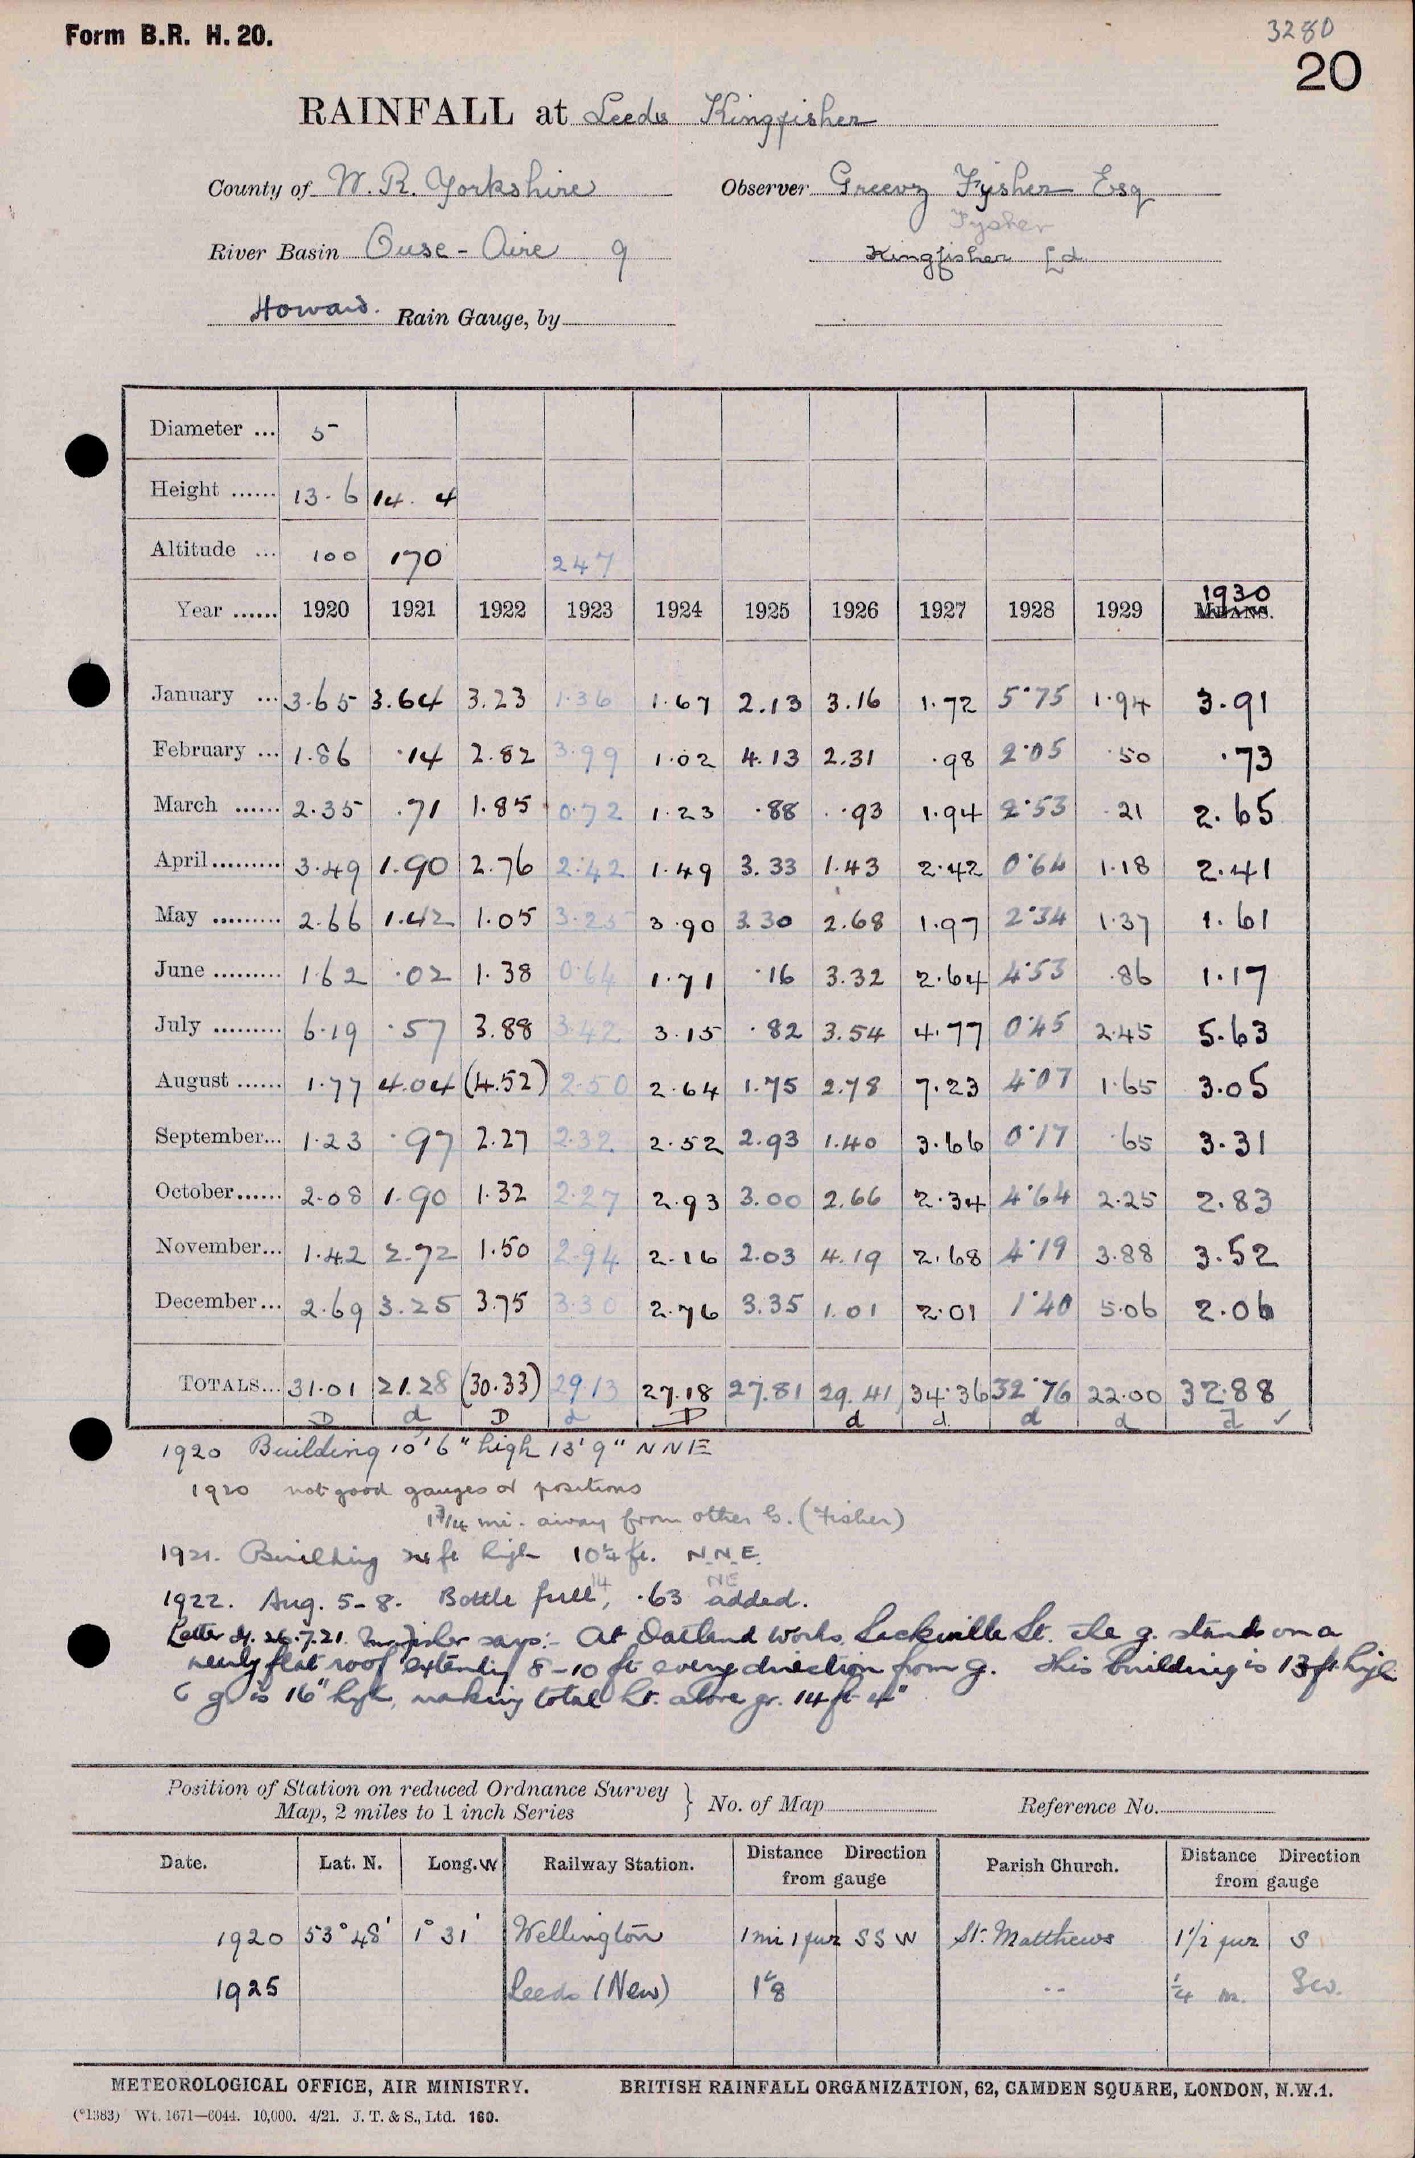 Form B.R. H. 20.
3280
20
RAINFALL at Leeds Kingfisher
County of W. R. Yorkshire Observer Greevz Fysher Esq
Fysher
River Basin Ouse - Aire 9 Kingfisher Ld
Howard. Rain Gauge, by
Diameter ... 5
Height ...... 13. 6 14. 4
Altitude ... 100 170 247
Year ...... 1920 1921 1922 1923 1924 1925 1926 1927 1928 1929 1930 MEANS.
January ... 3.65 3.64 3.23 1.36 1.67 2.13 3.16 1.72 5.75 1.94 3.91
February ... 1.86 .14 2.82 3.99 1.02 4.13 2.31 .98 2.05 .50 .73
March ...... 2.35 .71 1.85 0.72 1.23 .88 .93 1.94 2.53 .21 2.65
April......... 3.49 1.90 2.76 2.42 1.49 3.33 1.43 2.42 0.64 1.18 2.41
May ......... 2.66 1.42 1.05 3.25 3.90 3.30 2.68 1.97 2.34 1.37 1.61
June ......... 1.62 .02 1.38 0.64 1.71 .16 3.32 2.64 4.53 .86 1.17
July ......... 6.19 .57 3.88 3.42 3.15 .82 3.54 4.77 0.45 2.45 5.63
August ...... 1.77 4.04 (4.52) 2.50 2.64 1.75 2.78 7.23 4.07 1.65 3.05
September... 1.23 .97 2.27 2.32 2.52 2.93 1.40 3.66 0.17 .65 3.31
October...... 2.08 1.90 1.32 2.27 2.93 3.00 2.66 2.34 4.64 2.25 2.83
November... 1.42 2.72 1.50 2.94 2.16 2.03 4.19 2.68 4.19 3.88 3.52
December... 2.69 3.25 3.75 3.30 2.76 3.35 1.01 2.01 1.40 5.06 2.06
TOTALS... 31.01 21.28 (30.33) 29.13 27.18 27.81 29.41 34.36 32.76 22.00 32.88
D d D d D d d d d d ✓
1920 Building 10' 6" high 13' 9" NNE
1920 not good gauges or positions
1 3/4 mi. away from other G. (Fisher)
1921. Building high 10 1/4 ft. N.N.E.
14 NE
1922. Aug. 5-8. Bottle full, .63 added.
Letter d. 26.7.21 Mr Fisher says:- At Oatland Works, Sackville St. the g. stands on a
nearly flat roof extending 8-10 ft every direction from g. This building is 13 ft high
g. is 16" high, making total ht. above gr. 14 ft 4"
Position of Station on reduced Ordnance Survey
Map, 2 miles to 1 inch Series } No. of Map Reference No.
Date. Lat. N. Long. W Railway Station. Distance Direction from gauge Parish Church. Distance Direction from gauge
1920 53° 48' 1° 31' Wellington 1 mi 1 fur SSW St. Matthews 1 1/2 fur S
1925 Leeds (New) 1 1/8 -- 1/4 m. SW.
METEOROLOGICAL OFFICE, AIR MINISTRY. BRITISH RAINFALL ORGANIZATION, 62, CAMDEN SQUARE, LONDON, N.W.1.
(*1383) Wt. 1671—6044. 10,000. 4/21. J. T. & S., Ltd. 160.